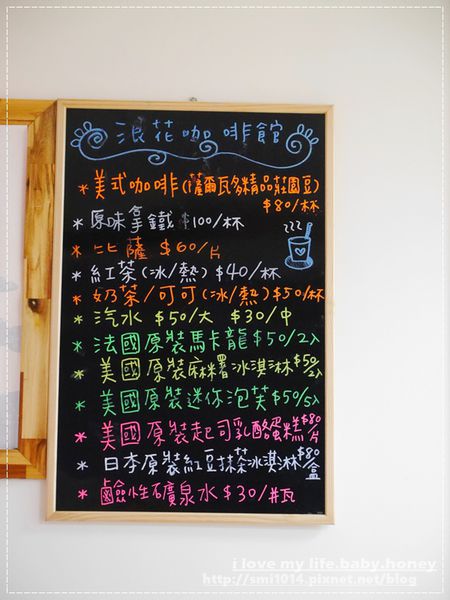 浪花咖啡館
* 美式咖啡(薩爾瓦多精品莊園豆)
$80/杯
* 原味拿鐵 $100/杯
* 比薩 $60/片
* 紅茶(冰/熱) $40/杯
* 奶茶/可可(冰/熱) $50/杯
* 汽水 $50/大 $30/中
* 法國原裝馬卡龍 $50/2入
* 美國原裝麻糬冰淇淋 $50/2入
* 美國原裝迷你泡芙 $50/5入
* 美國原裝起司乳酪蛋糕 $80/片
* 日本原裝紅豆抹茶冰淇淋 $80/盒
* 鹼性礦泉水 $30/瓶
zzz
i love my life.baby.honey
http://smi1014.pixnet.net/blog